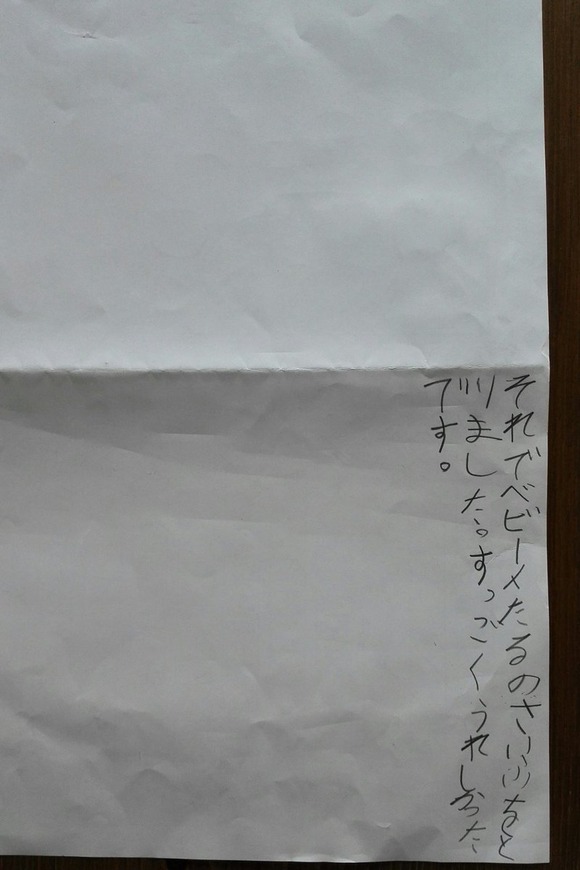 それでベビーメたるのさいふをと
りました。すっごくうれしかった
です。